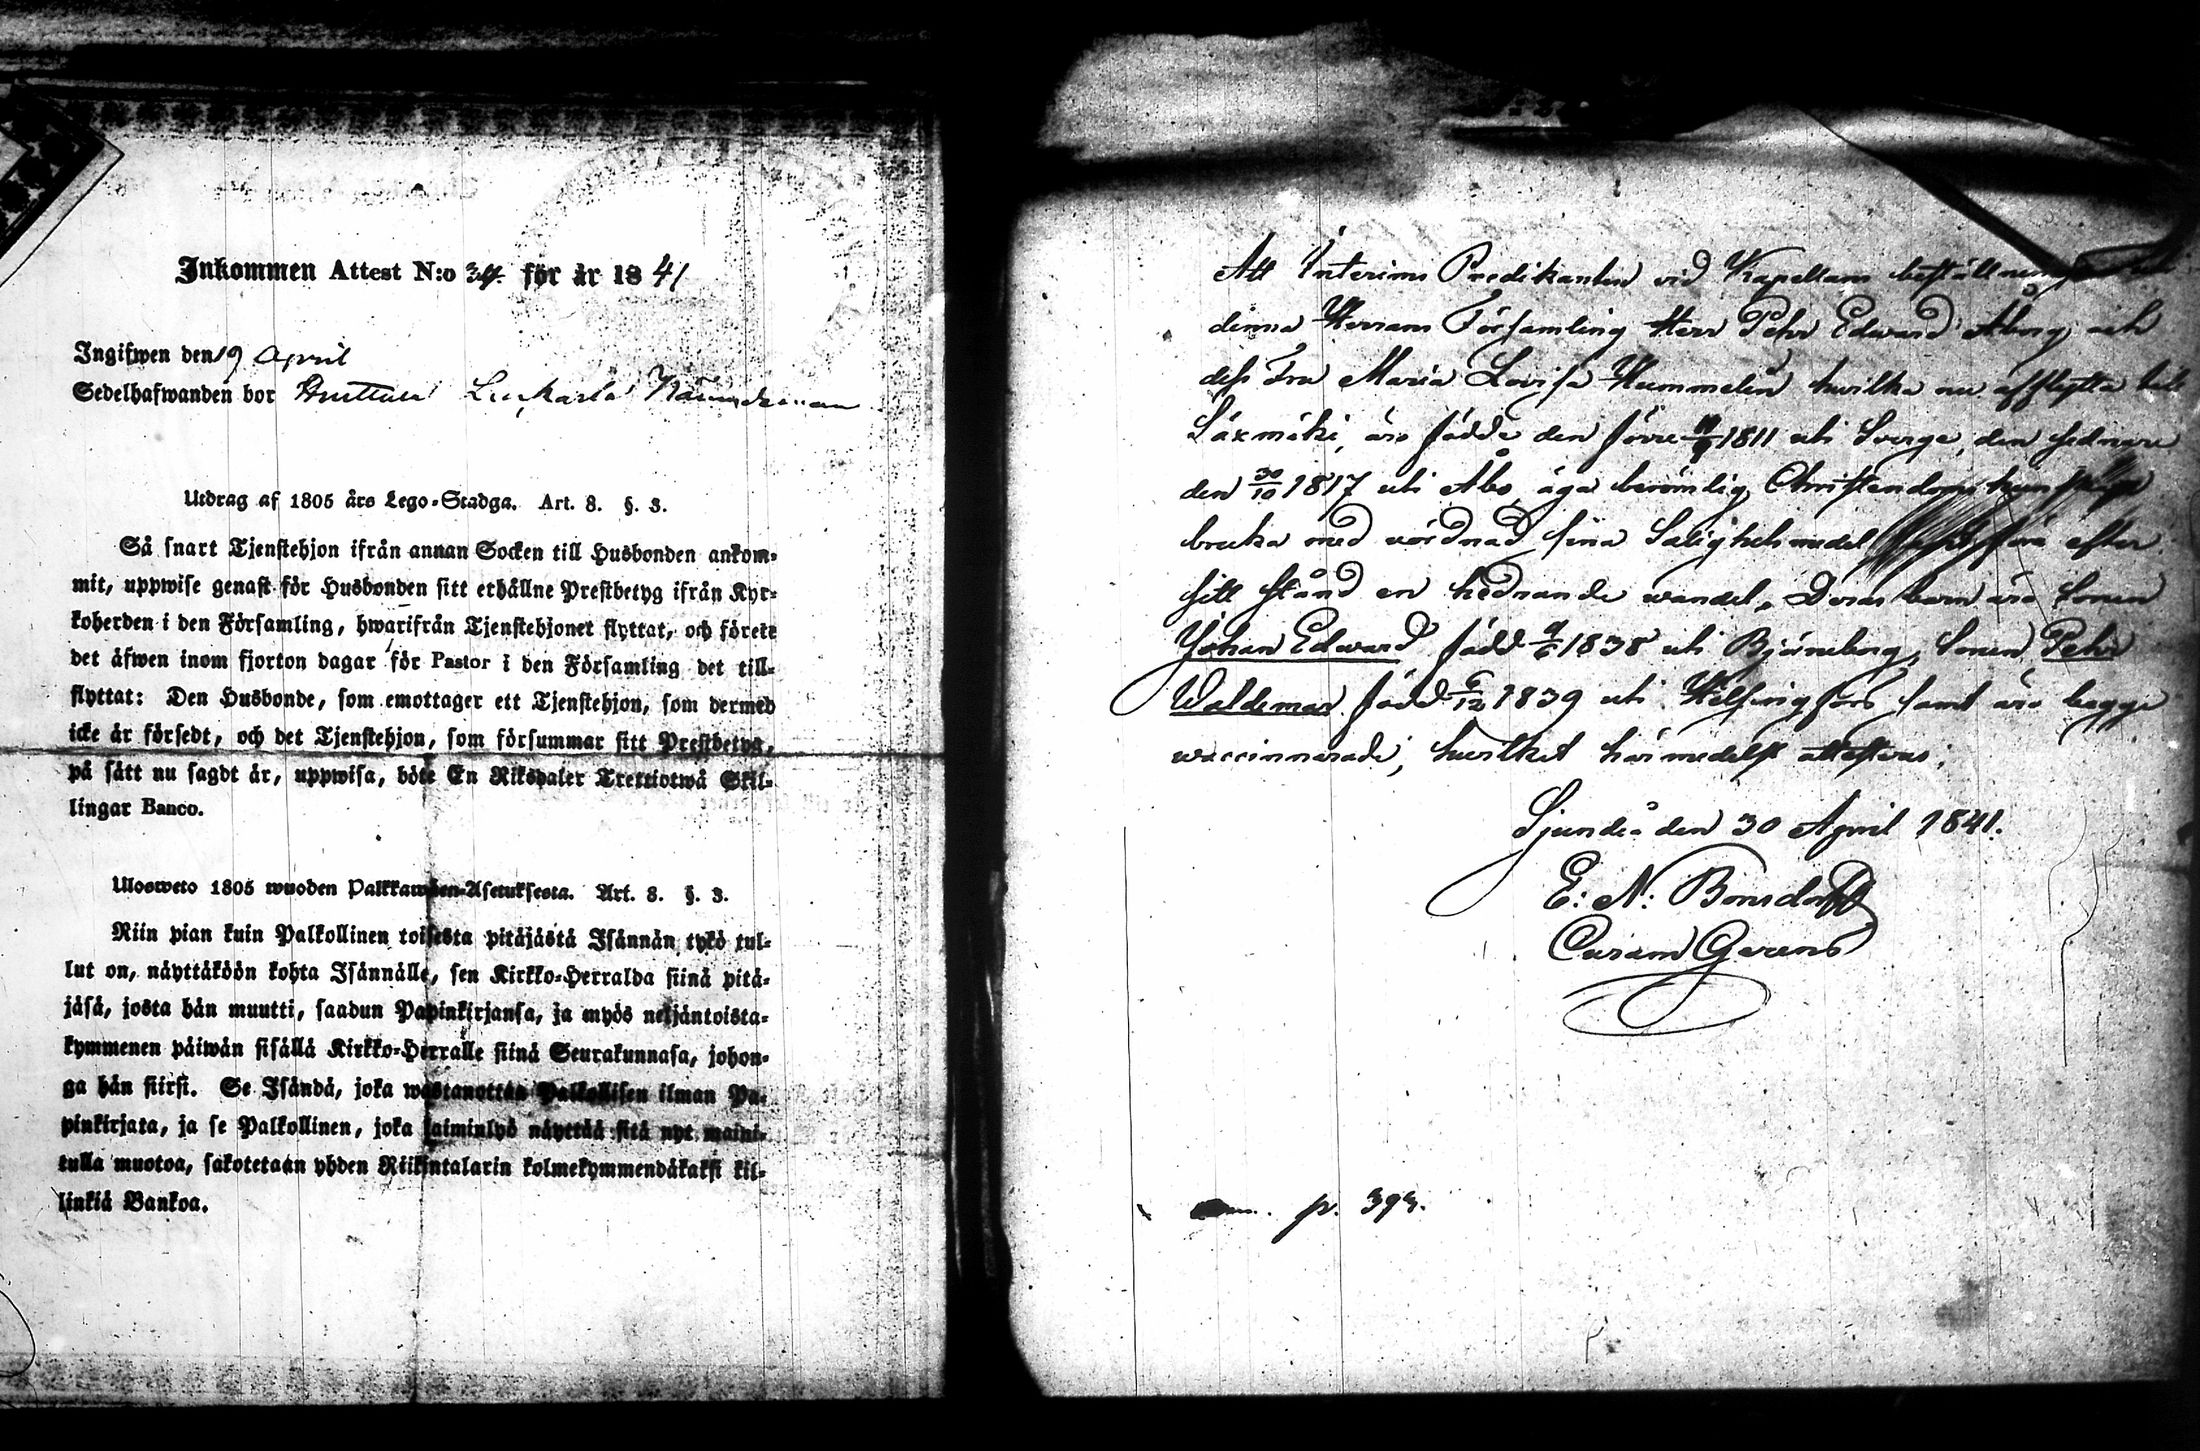 Inkommen Attest N:o 34. för år 1841
Ingifwen den 19 April
Sedelhafwanden bor
Utdrag af 1805 års Lego-Stadga. Art. 8. §. 3.
Så snart Tjenstehjon ifrån annan Socken till Husbonden ankom-
mit, uppwise genast för Husbonden sitt erhållne Prestbetyg ifrån Kyr-
koherden i den Församling, hwarifrån Tjenstehjonet flyttat, och förete
det äfwen inom fjorton dagar för Pastor i den Församling det till-
flyttat: Den Husbonde, som emottager ett Tjenstehjon, som dermed
icke är försedt, och det Tjenstehjon, som försummar sitt Prestbetyg,
på sätt nu sagdt är, uppwisa, böte En Riksdaler Trettiotwå Skil-
lingar Banco.
Ulosweto 1805 wuoden Palkkawäen-Asetuksesta. Art. 8. §. 3.
Niin pian kuin Palkollinen toisesta pitäjästä Isännän tykö tul-
lut on, näyttäköön kohta Isännälle, sen Kirkko-Herralda siinä pitä-
jäsä, josta hän muutti, saadun Papinkirjansa, ja myös neljäntoista-
kymmenen päiwän sisällä Kirkko-Herralle siinä Seurakunnasa, johon-
ga hän siirsi. Se Isändä, joka wastanottaa Palkollisen ilman Pa-
pinkirjata, ja se Palkollinen, joka laiminlyö näyttää sitä nyt maini-
tulla muotoa, sakotetaan yhden Riikintalarin kolmekymmendäkaksi kil-
linkiä Bankoa.
Att Interims Predikanten vid Kapellans
denna Herrans Församling Herr Pehr Edward Åberg och
dess Fru Maria Lovisa Hummelin hwilka nu afflytta till
Säxmäki, äro födde den förre 1811 uti Sverge, den sednare
den 30/10 1817 uti Åbo, äga berömlig Christendoms kunskap
bruka med vördnad sina Salighets medel föra efter
sitt stånd en hedrande wandel, Deras barn äro Sonen
Johan Edward född 1838 uti Björneborg, Sonen Pehr
Waldemar född 6/12 1839 uti Helsingfors samt äro begge
waccinnerade, hwilket härmedelst attesteras;
Sjundeå den 30 April 1841.
E: N: Bonsdorff
Curam Gerens
p. 393.